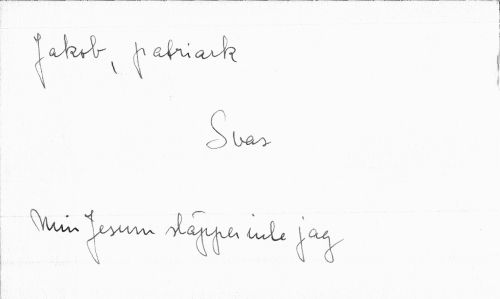 Jakob, patriark
Svas
Min Jesum släpper inte jag